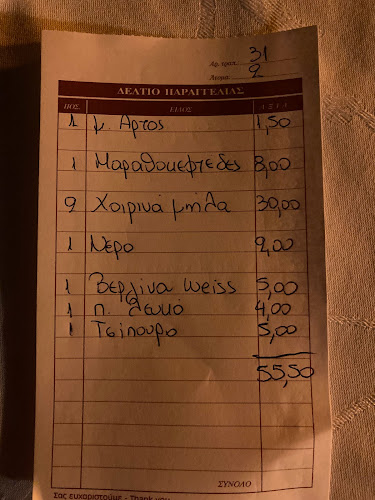 Αρ. τραπ. 31
Άτομα: 2
ΔΕΛΤΙΟ ΠΑΡΑΓΓΕΛΙΑΣ
ΠΟΣ. ΕΙΔΟΣ ΑΞΙΑ
1 ψ. Αρτος 1,50
1 Μαραθοκεφτεδες 8,00
2 Χοιρινά μήλα 30,00
1 Νερο 2,00
1 Βερλίνα weiss 5,00
1 π. λευκό 4,00
1 Τσίπουρο 5,00
55,50
ΣΥΝΟΛΟ
Σας ευχαριστούμε - Thank you